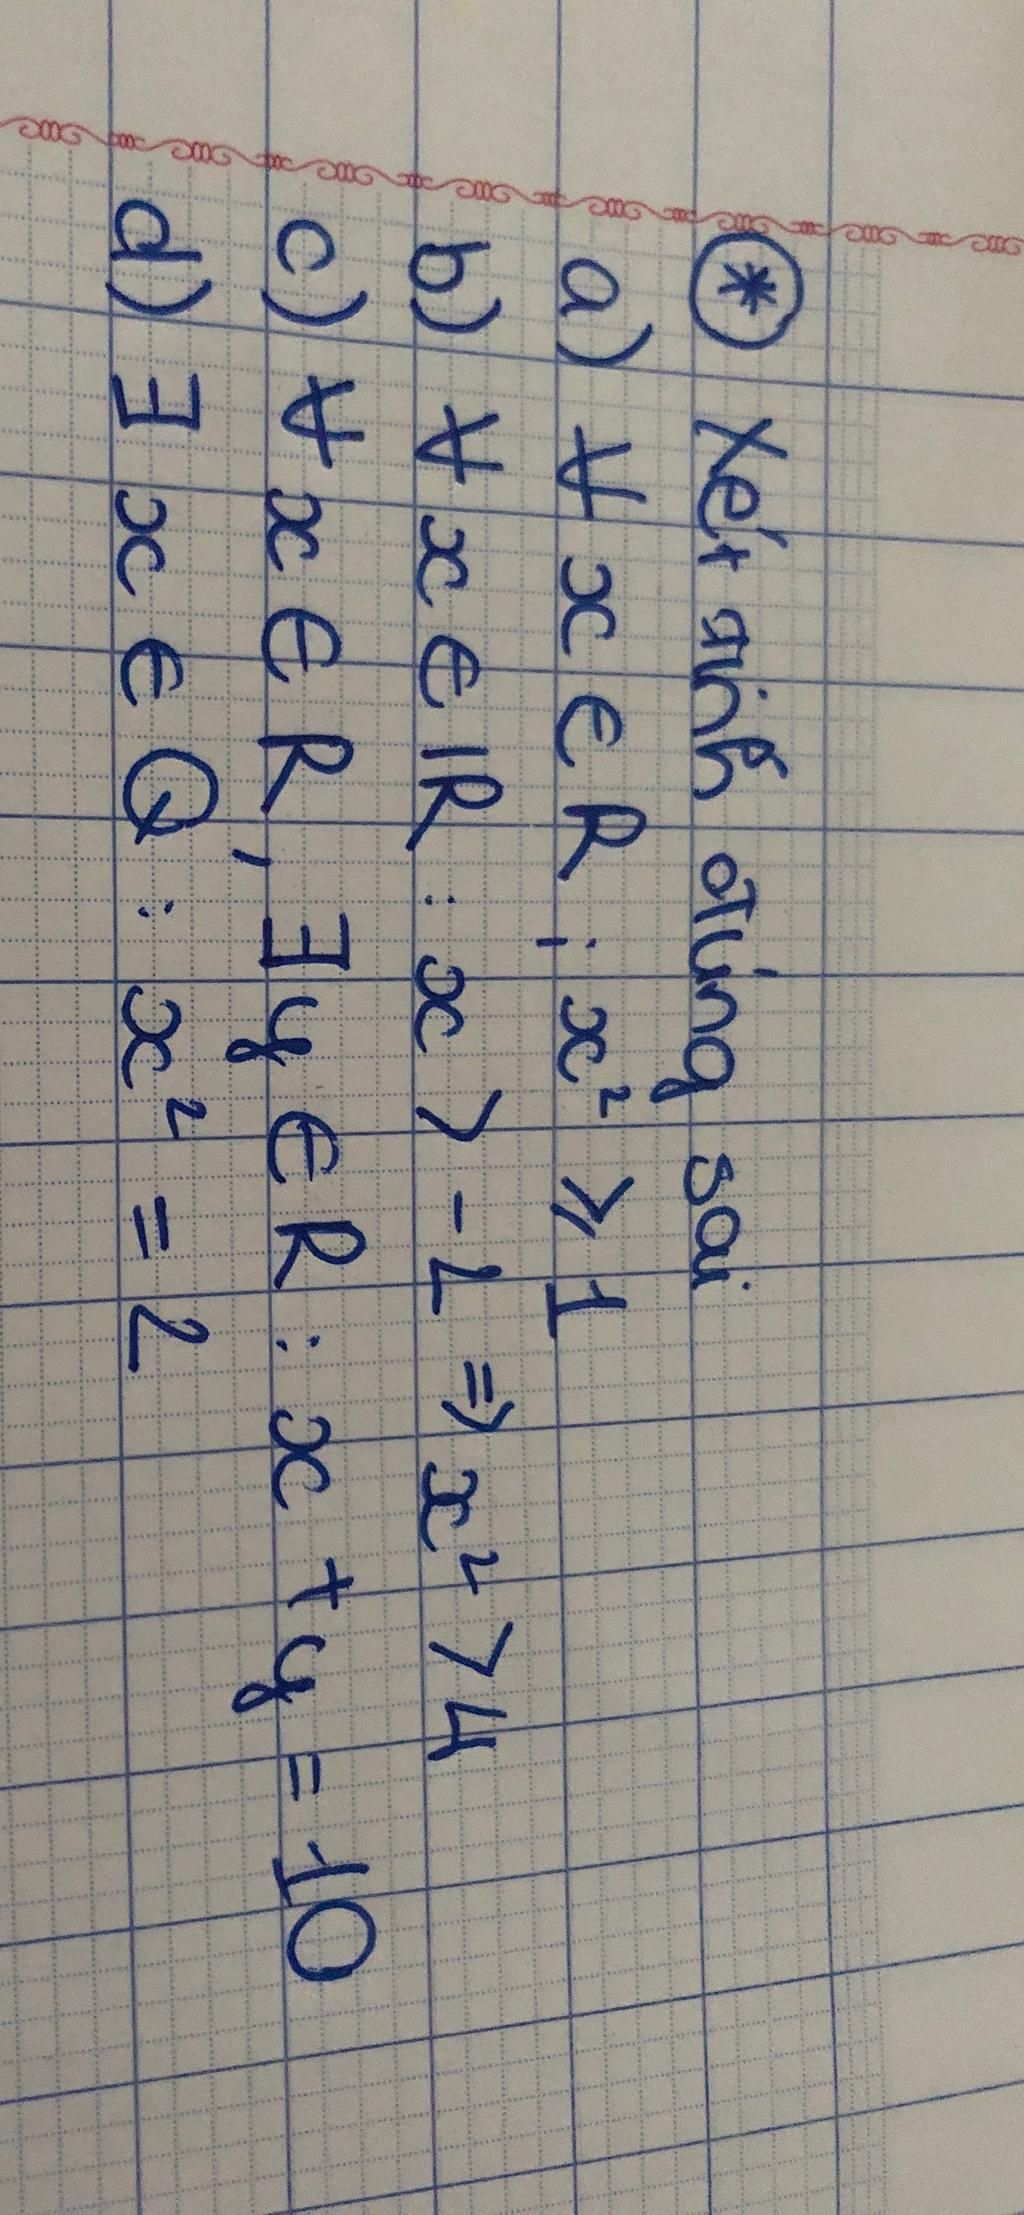 * Xét tính đúng sai
a) ∀ x ∈ R ; x² ≥ 1
b) ∀ x ∈ R : x > -2 ⇒ x² > 4
c) ∀ x ∈ R, ∃ y ∈ R : x + y = 10
d) ∃ x ∈ Q : x² = 2